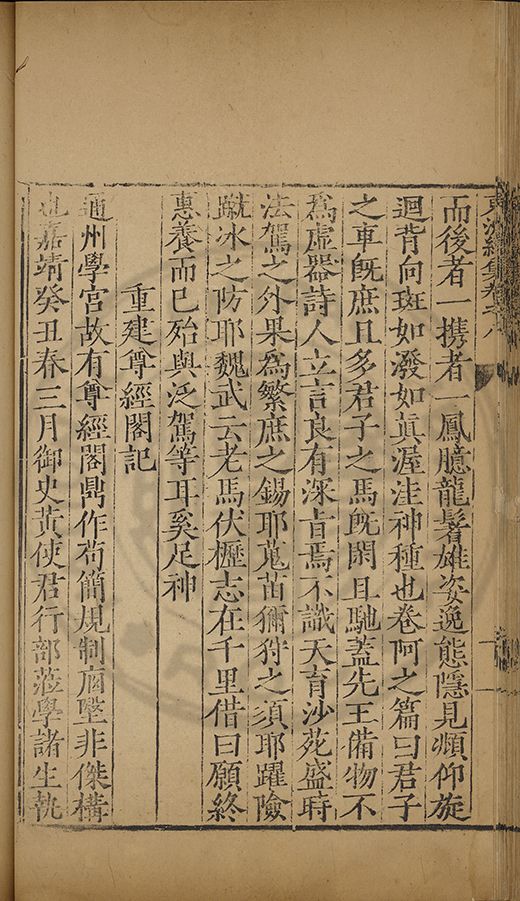 而後者一携者一鳳臆龍鬐雄姿逸態隱見頫仰旋
迴背向斑如潑如眞渥洼神種也卷阿之篇曰君子
之車旣庶且多君子之馬旣閑且馳蓋先王備物不
爲虛器詩人立言良有深旨焉不識天育沙苑盛時
法駕之外果爲繁庶之錫耶蒐苗獮狩之須耶躍險
蹴冰之防耶魏武云老馬伏櫪志在千里借曰願終
惠養而已殆與泛駕等耳奚足神
重建尊經閣記
通州學宮故有尊經閣鼎作苟簡規制庳墜非傑構
也嘉靖癸丑春三月御史黃使君行部蒞學諸生執